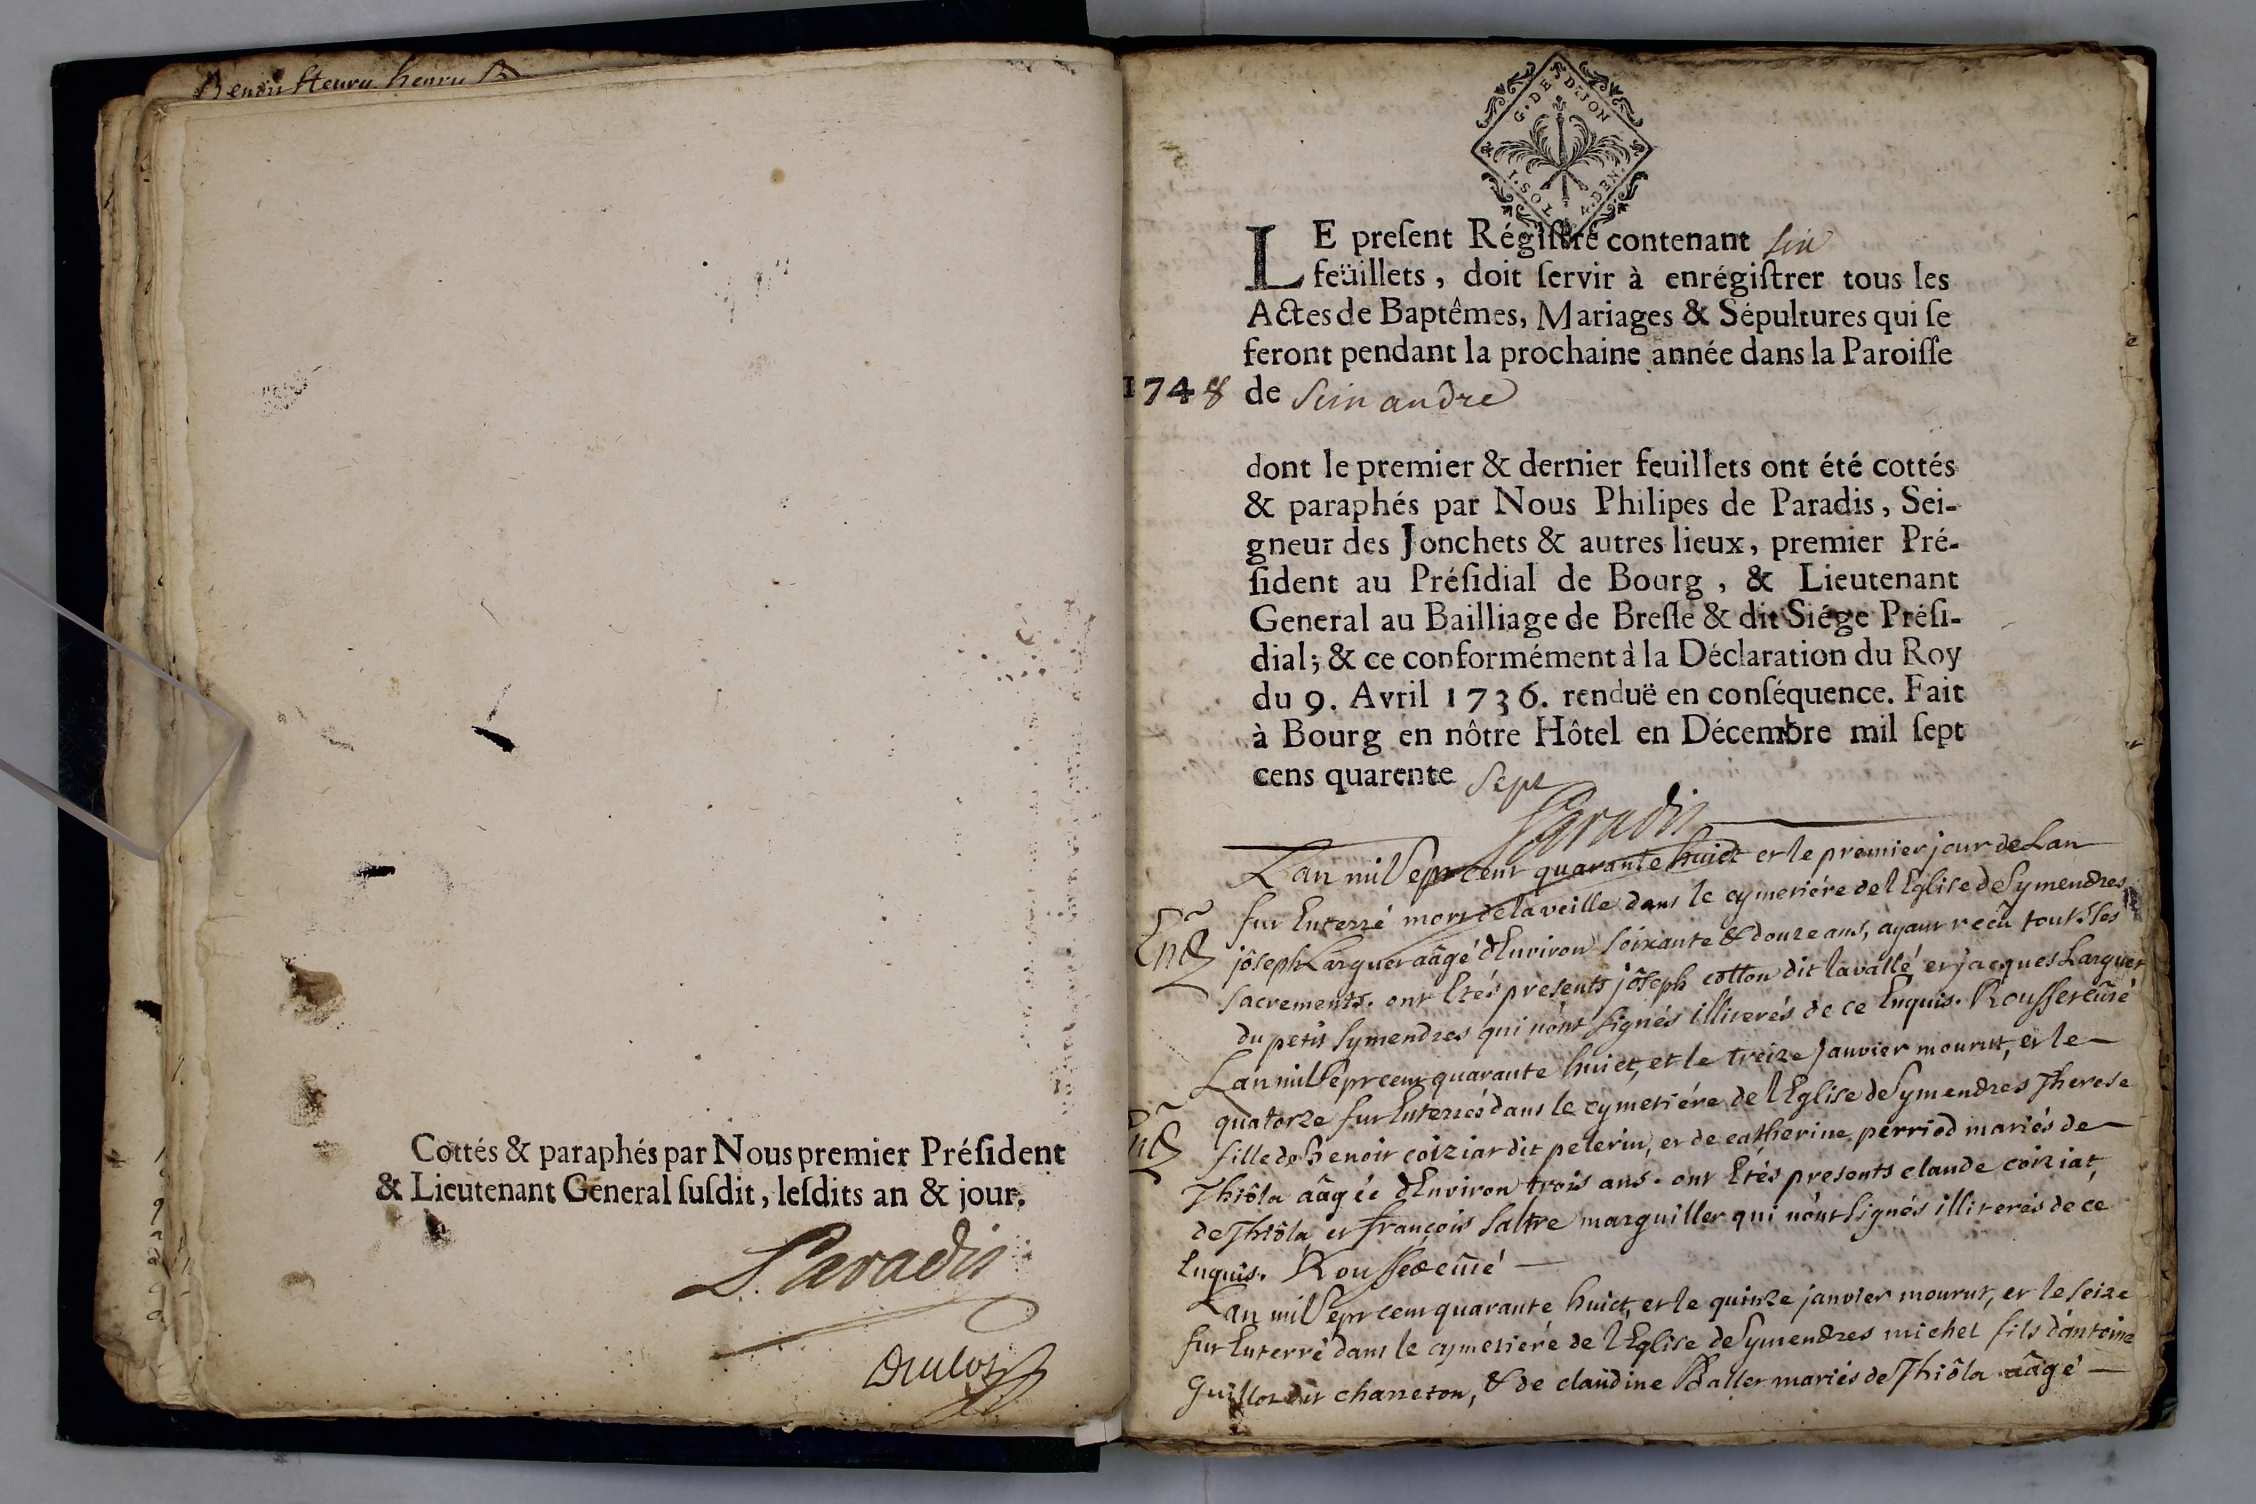 Benoit henry henry
Cottés & paraphés par Nous premier Préſident
& Lieutenant General ſuſdit, leſdits an & jour.
Paradis
G. DE DIJON
1. SOL 4. DEN.
LE preſent Régiſtre contenant six
feüillets, doit ſervir à enrégiſtrer tous les
Actes de Baptêmes, Mariages & Sépultures qui ſe
feront pendant la prochaine année dans la Paroiſſe
1748 de Sein andre
dont le premier & dernier feuillets ont été cottés
& paraphés par Nous Philipes de Paradis, Sei-
gneur des Jonchets & autres lieux, premier Pré-
ſident au Préſidial de Bourg, & Lieutenant
General au Bailliage de Breſſe & dit Siége Préſi-
dial; & ce conformément à la Déclaration du Roy
du 9. Avril 1736. renduë en conſéquence. Fait
à Bourg en nôtre Hôtel en Décembre mil ſept
cens quarente Sept
Paradis
Lan mil Sept cent quarante huict et le premier jour de Lan
fut Enterré mort de la veille dans le cymetiére de l'Eglise de Symendres
jôseph Larguet aâgé d'Environ soixante & douze ans, ayant reçû tout les
sacrements. ont Etés présents jôseph cotton dit lavallé et jacques Larguet
du petit Symendres qui n'ont signés illiterés de ce Enquis. Rousset cûré
Lan mil Sept cent quarante huict, et le treize Janvier mourut, et le
quatorze fut Enterrés dans le cymetiére de l'Eglise de Symendres Therese
fille de Benoit coiziat dit pelerin, et de catherine perriod mariés de
Thiôla aâgée d'Environ trois ans. ont Etés presents claude coiziat
de Thiôla et françois Saltre marguiller qui n'ont signés illiterés de ce
Enquis. Rousset cûré
Lan mil Sept cent quarante huict, et le quinze janvier mourut, et le seize
fut Enterré dans le cymetiére de l'Eglise de Symendres michel fils d'antoine
Guillot dit charreton, & de claudine Baller mariés de Thiôla aâgé